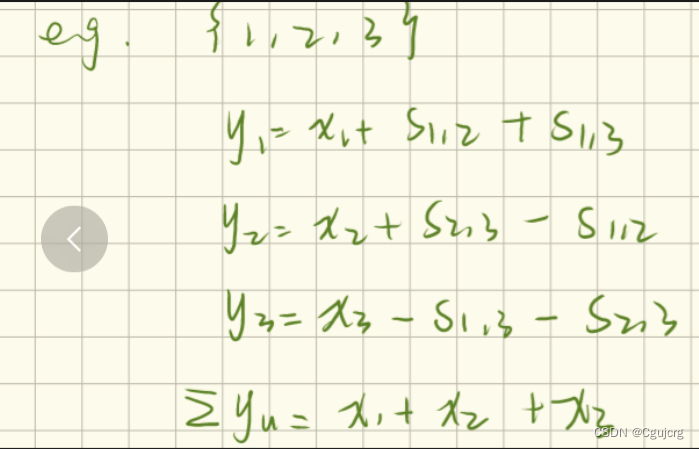 eg. {1,2,3}
y₁= x₁+ s₁,₂ + s₁,₃
y₂= x₂+ s₂,₃ - s₁,₂
y₃= x₃ - s₁,₃ - s₂,₃
Σ yᵤ = x₁+ x₂ +x₃
CSDN @Cgujcrg